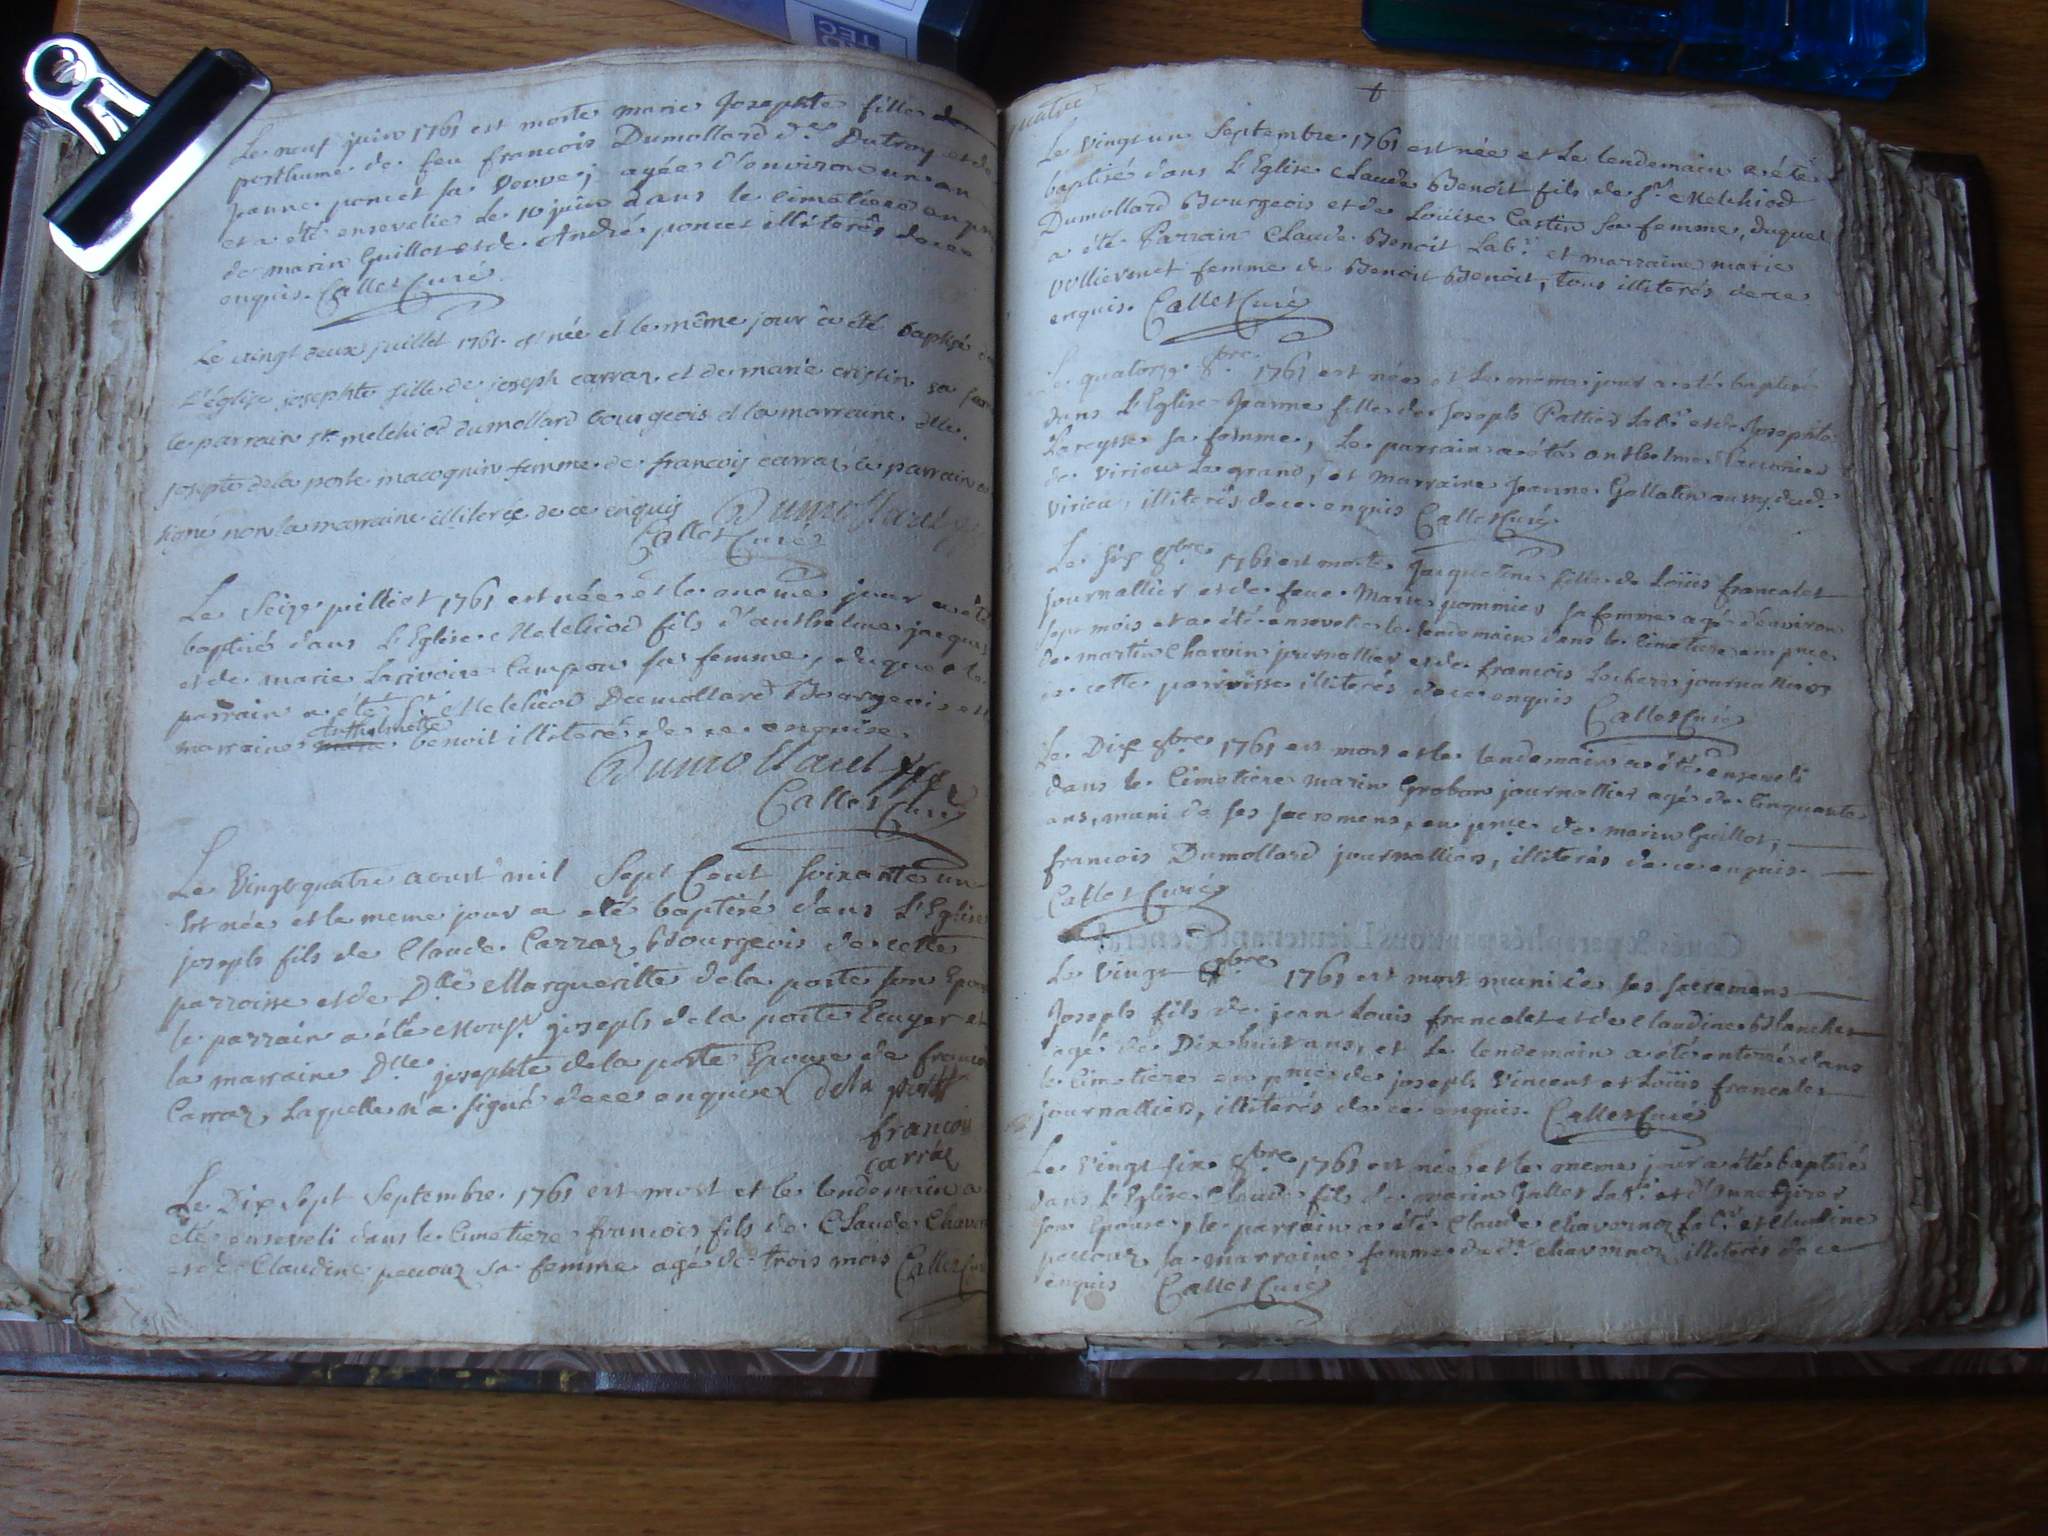 Le neuf juin 1761 est morte marie Josephte fille
posthume de feu francois Dumollard dt Dutroy et de
Jeanne poncet sa Veuve, agée d'environ un an
et a été ensevelie Le 10 juin dans le cimetiere en
de marin Guillot et de André poncet illiterés de ce
enquis. Callet Curé
Le vingt deux juillet 1761 est née et le même jour a été baptisé
L'église josephte fille de joseph carraz et de marie cristin sa
le parrain sr melchiod dumollard bourgeois et la marraine dlle
josephte de la porte macognin femme de francois carraz, le parrain a
signé non la marraine illiterée de ce enquis Dumollard
Callet Curé
Le Seize juilliet 1761 est née et le meme jour a été
baptisé dans L'Eglise Melchiod fils d'anthelme jacques
et de marie Larivoire Campon sa femme, duquel le
parrain a été Sr Melchiod Dumollard Bourgeois et
Anthelmette
marraine marie benoit illiterée de ce enquise.
Dumollard
Callet Curé
Le Vingt quatre aoust mil Sept Cent Soixante un
Est née et le meme jour a été baptisé dans L'Eglise
joseph fils de Claude Carraz Bourgeois de cette
parroisse et de Dlle Margueritte de la porte son Epouse
le parrain a été Monsr joseph de la porte Ecuyer et
la marraine Dlle josephte de la porte Epouse de francois
Carraz, Laquelle n'a signé de ce enquise De la porte
francois
carraz
Le Dix Sept Septembre 1761 est mort et le lendemain a
été enseveli dans le Cimetiere francois fils de Claude Chavornoz
et de Claudine pecouz sa femme agé de trois mois Callet Curé
quatre
Le Vingt un Septembre 1761 est née et Le lendemain a été
baptisé dans L'Eglise Claude Benoit fils de Sr Melchiod
Dumollard Bourgeois et de Loüise Castin sa femme, duquel
a été Parrain Claude Benoit Labr et marraine marie
Vullievenet femme de Benoit Benoit, tous illiterés de ce
enquis. Callet Curé
Le quatorze 8bre 1761 est née et Le meme jour a été baptisée
dans L'Eglise Jeanne fille de Joseph Pattier Labr et de Josephte
Lareysse sa femme, Le parrain a été anthelme
de Virieu Le grand, et marraine Jeanne Gallatin aussy dud.
Virieu, illiterés de ce enquis Callet Curé
Le Six 8bre 1761 est morte Jacqueline fille de Loüis francalet
journallier et de feue Marie pommier sa femme agé d'environ
Sept mois et a été ensevelie le lendemain dans le Cimetiere en pnce
de martin Charvin journallier et de francois Locherin journalliers
de cette parroisse illiterés de ce enquis
Callet Curé
Le Dix 8bre 1761 est mort et le lendemain a été enseveli
dans le Cimetiere marin Grobon journallier agé de Cinquante
ans, muni de ses sacremens, en pnce de marin Guillot,
francois Dumollard journalliers, illiterés de ce enquis.
Callet Curé
Le Vingt 8bre 1761 est mort muni de ses sacremens
Joseph fils de jean Louis francalet et de Claudine Blanchet
agé de Dix huit ans, et Le lendemain a été enterré dans
le Cimetiere en pnce de joseph Vincent et Loüis francalet
journalliers, illiterés de ce enquis. Callet Curé
Le Vingt six 8bre 1761 est née et le meme jour a été baptisé
dans L'Eglise Claude fils de marin Gallet Labr et d'anne Girer
son Epouse, le parrain a été Claude Chavornoz Labr et Claudine
pecouz sa marraine femme dud. Chavornoz illiterés de ce
enquis Callet Curé